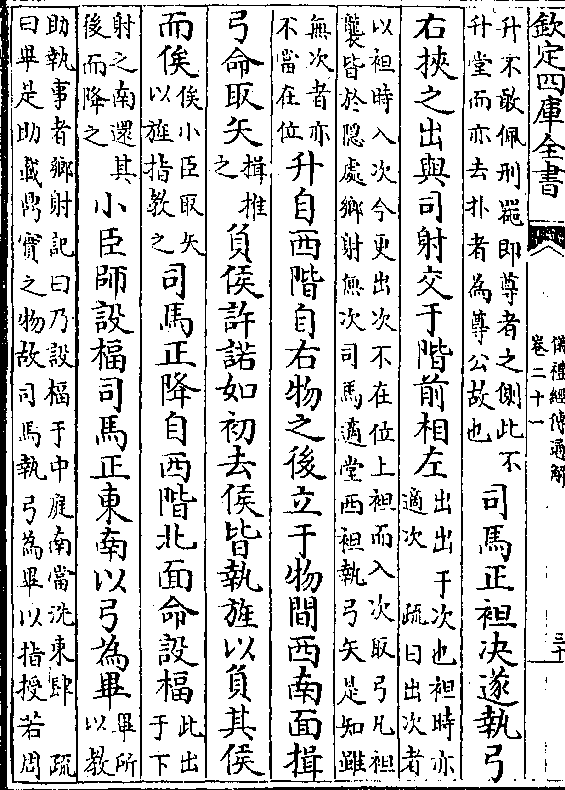 欽定四庫全書
儀禮經傳通解
卷二十一
三十
升不敢佩刑器即尊者之側此不
升堂而亦去扑者為尊公故也
司馬正袒決遂執弓
右挾之出與司射交于階前相左
出出于次也袒時亦
適次 疏曰出次者
以袒時入次今更出次不在位上袒而入次取弓凡袒
襲皆於隱處鄉射無次司馬適堂西袒執弓矢是知雖
無次者亦
不當在位
升自西階自右物之後立于物間西南面揖
弓命取矢
揖推
之
負侯許諾如初去侯皆執旌以負其侯
而俟
俟小臣取矢
以旌指教之
司馬正降自西階北面命設楅
此出
于下
射之南還其
後而降之
小臣師設楅司馬正東南以弓為畢
畢所
以教
助執事者鄉射記曰乃設楅于中庭南當洗東肆 疏
曰畢是助載鼎實之物故司馬執弓為畢以指授若周